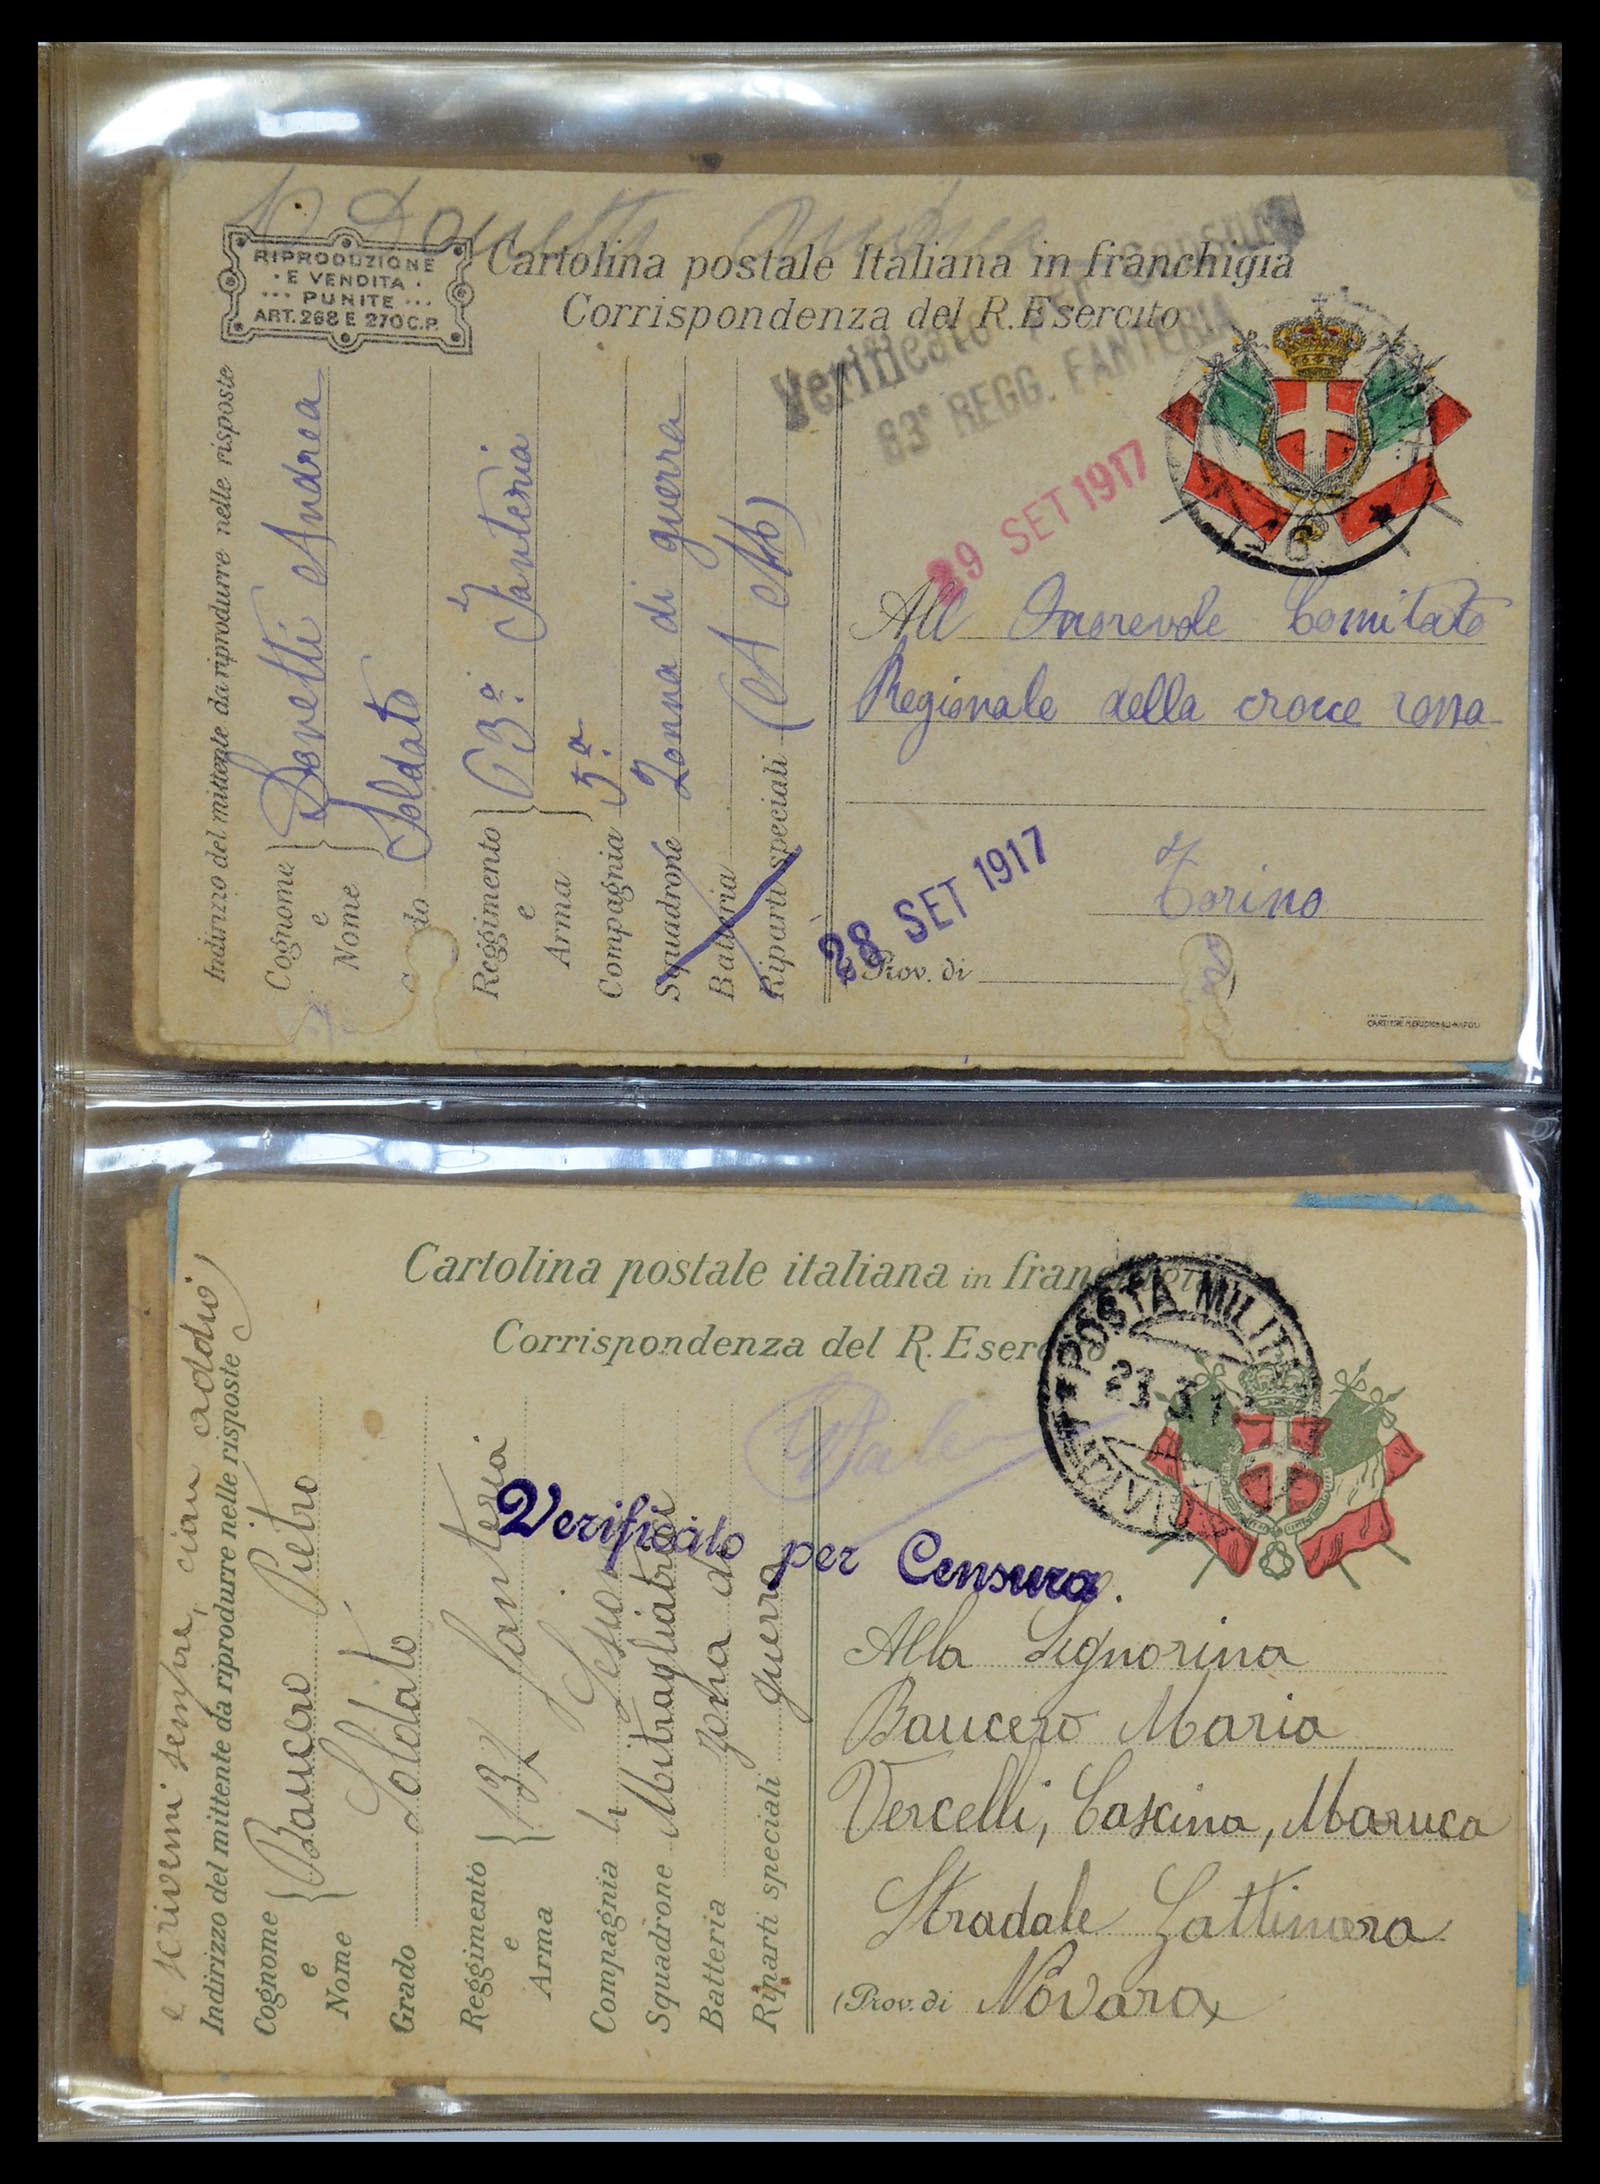 RIPRODUZIONE
· E VENDITA ·
··· PUNITE ···
ART. 268 E 270 C.P.
Cartolina postale Italiana in franchigia
Corrispondenza del R. Esercito
Verificato per censura
83° REGG. FANTERIA
29 SET 1917
Indirizzo del mittente da riprodurre nelle risposte
Cognome e Nome Donetti Andrea
Soldato
Reggimento e Arma 63.° Fanteria
Compagnia 5.a
Squadrone Zonna di guerra
Batteria
Riparti speciali
All Onorevole Comitato
Regionale della croce rossa
Torino
28 SET 1917
(Prov. di )
Cartolina postale italiana in
Corrispondenza del R. Esercito
POSTA MILIT
Verificato per Censura.
e scrivemi sempre, ciau addio
Indirizzo del mittente da riprodurre nelle risposte
Cognome e Nome Baucero Pietro
Grado Soldato
Reggimento e Arma 132 fanteria
Compagnia
Squadrone Mitragliatrici
Batteria zona di
Riparti speciali guerra
Alla Signorina
Baucero Maria
Vercelli, Cascina, Maruca
Stradale Gattinara
(Prov. di Novara